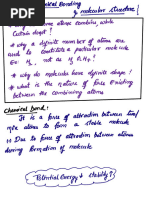 Chemical Bonding
& molecular structure!
* why some atoms combine while
certain don't?
* why a definite number of atoms are
constitute a particular molecule
Ex: H₂ not as
* why do molecules have definite shape!
* what is the nature of forces existing
between the combining atoms
Chemical bond:
It is a force of attraction between two/
more atoms to form a stable molecule
Due to force of attraction between atoms
during formation of molecule
Potential Energy↓ stability↑